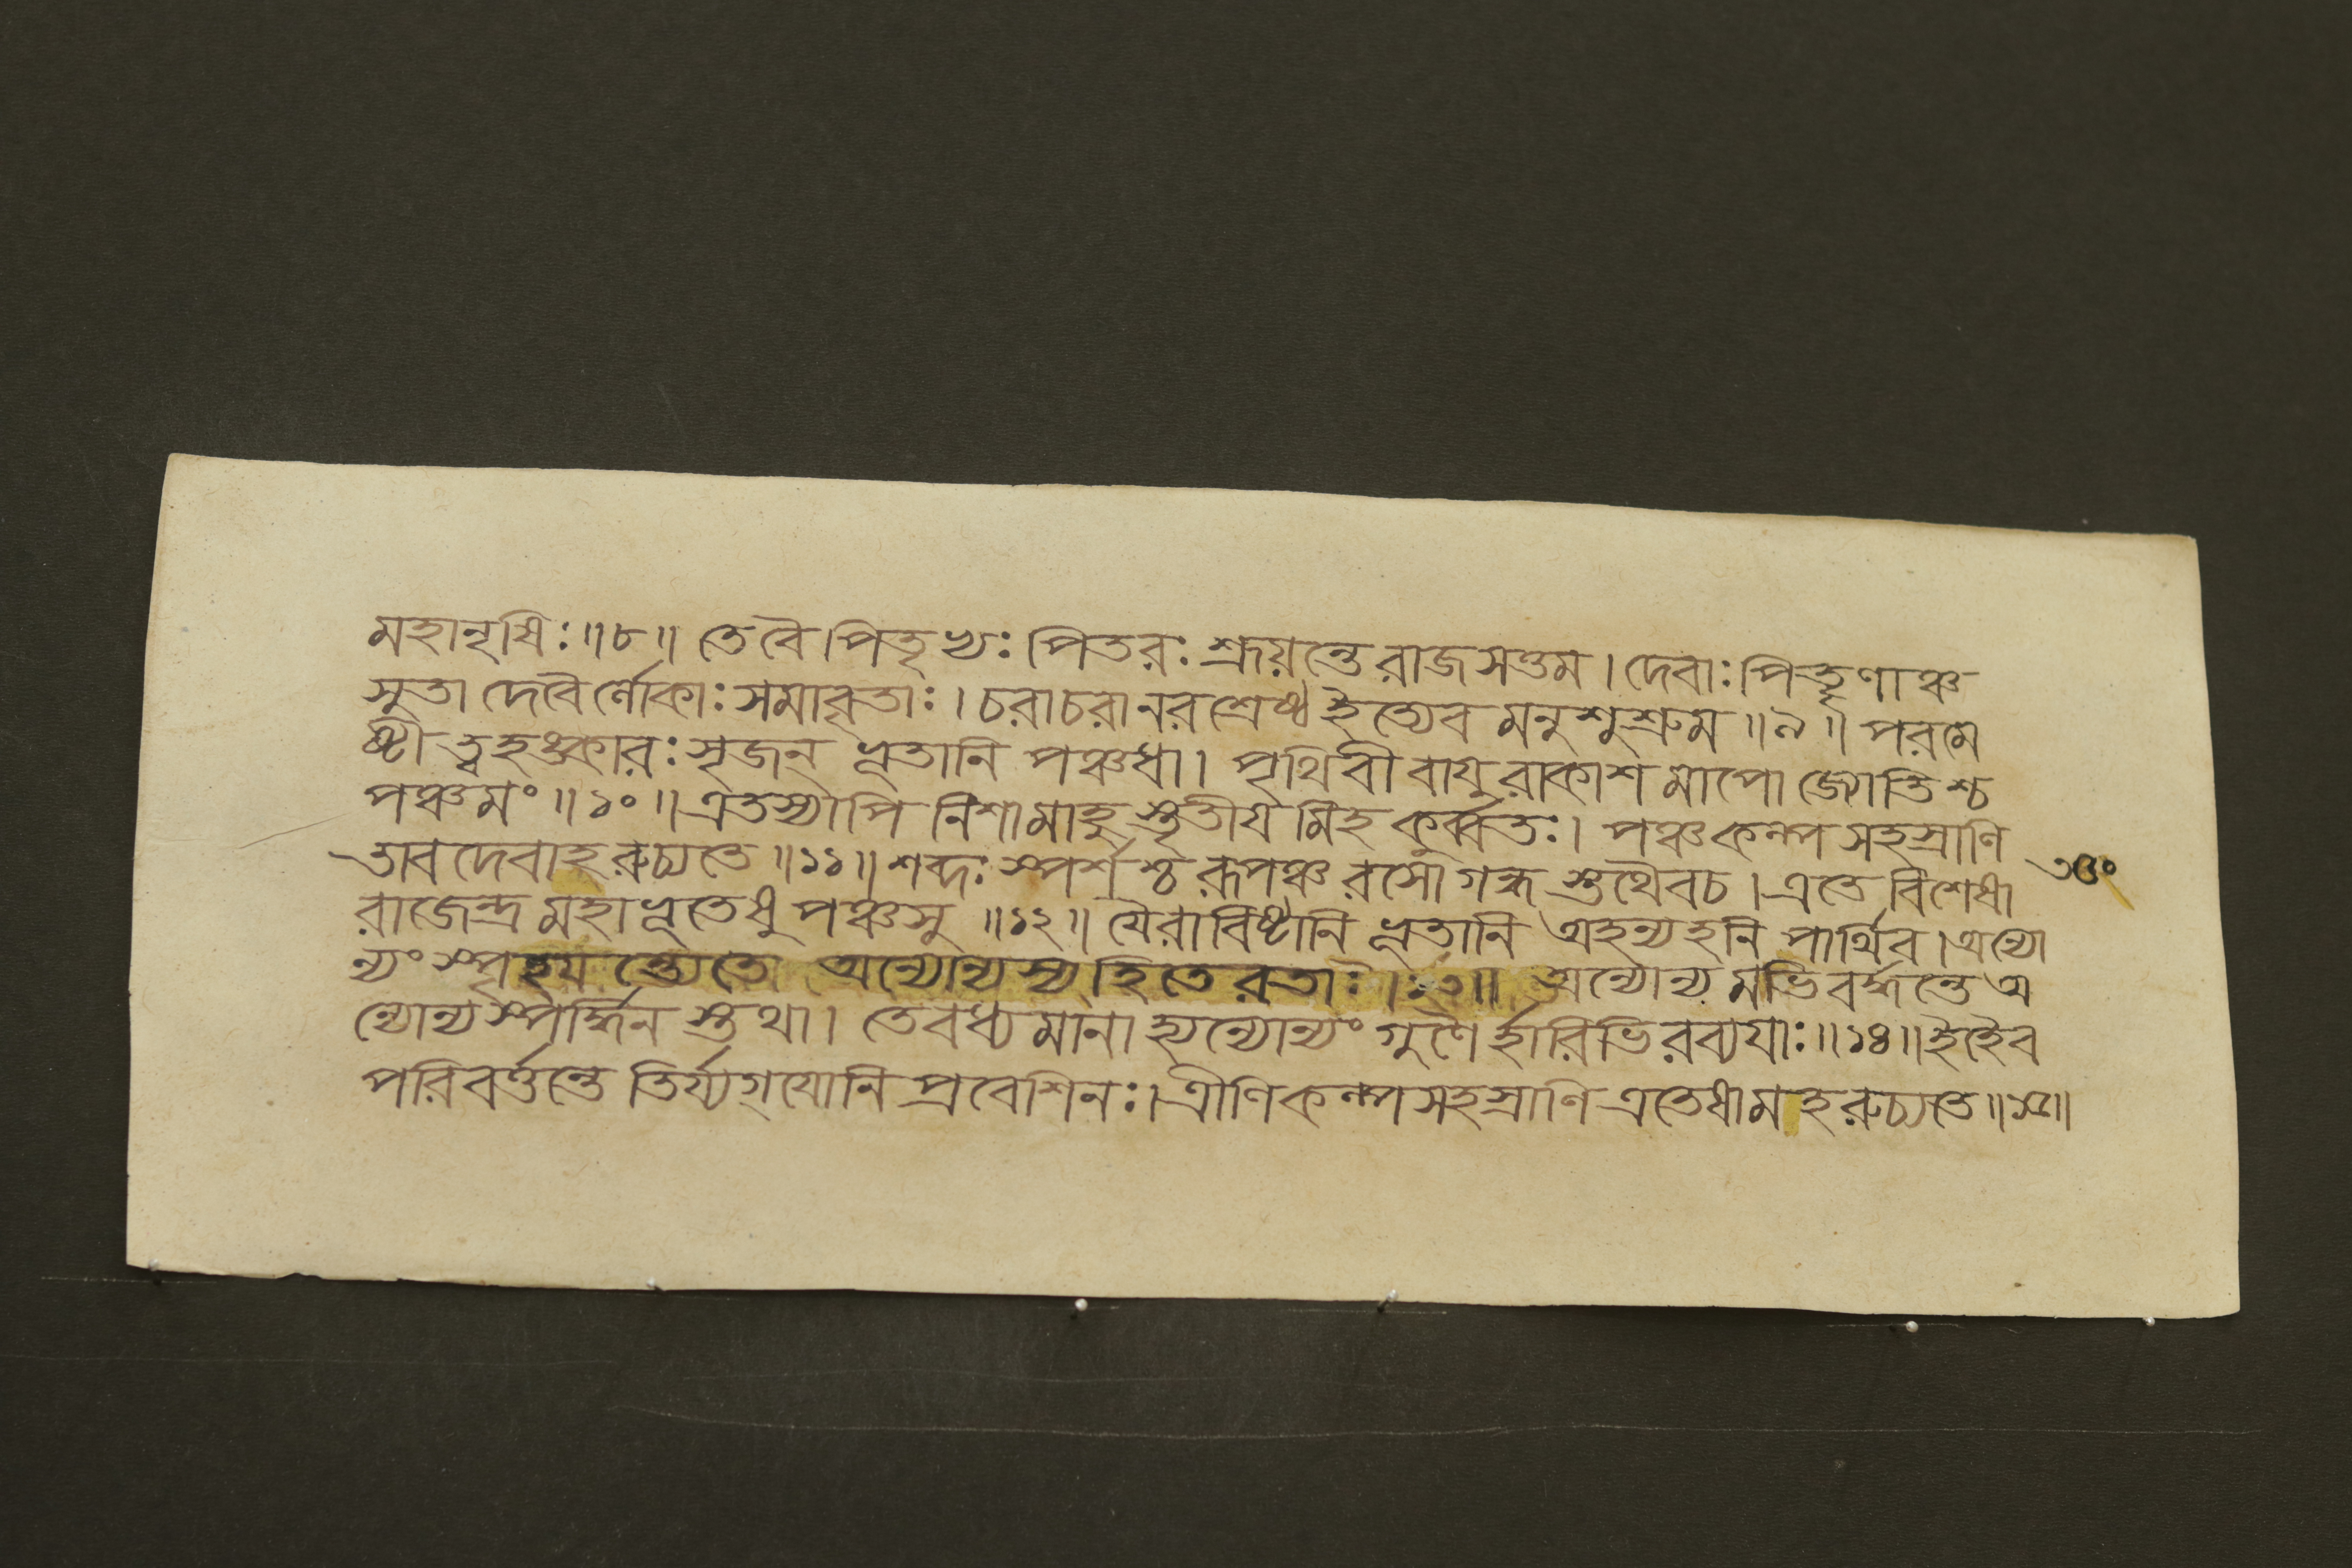 মহানৃষিঃ॥৮॥ তে বৈ পিতৃভ্যঃ পিতরঃ শ্রূয়ন্তে রাজসত্তম। দেবাঃ পিতৄণাঞ্চ
সুতা দেবৈর্লোকাঃ সমাবৃতাঃ। চরাচরা নরশ্রেষ্ঠ ইত্যেব মনুশুশ্রুম॥৯॥ পরমে
ষ্টী ত্বহঙ্কারঃ সৃজন্ ভূতানি পঞ্চধা। পৃথিবী বায়ুরাকাশমাপো জ্যোতিশ্চ
পঞ্চমং॥১০॥ এতস্যাপি নিশামাহুস্তৃতীয়মিহ কুর্ব্বতঃ। পঞ্চকল্পসহস্রাণি
তাবদেবাহরুচ্যতে॥১১॥ শব্দঃ স্পর্শশ্চ রূপঞ্চ রসো গন্ধস্তথৈব চ। এতে বিশেষা
রাজেন্দ্র মহাভূতেষু পঞ্চসু॥১২॥ যৈরাবিষ্টানি ভূতানি অহন্যহনি পার্থিব। অন্যো
ন্যং স্পৃহয়ন্ত্যেতে অন্যোন্যস্য হিতে রতাঃ।১৩॥ অন্যোন্যমভিবর্দ্ধন্তে অ
ন্যোন্যস্পর্দ্ধিনস্তথা। তে বধ্যমানা হ্যন্যোন্যং গুণৈর্হারিভিরব্যয়াঃ॥১৪॥ ইহৈব
পরিবর্ত্তন্তে তির্য্যগ্‌যোনিপ্রবেশিনঃ। ত্রীণি কল্পসহস্রাণি এতেষামহরুচ্যতে॥১৫॥